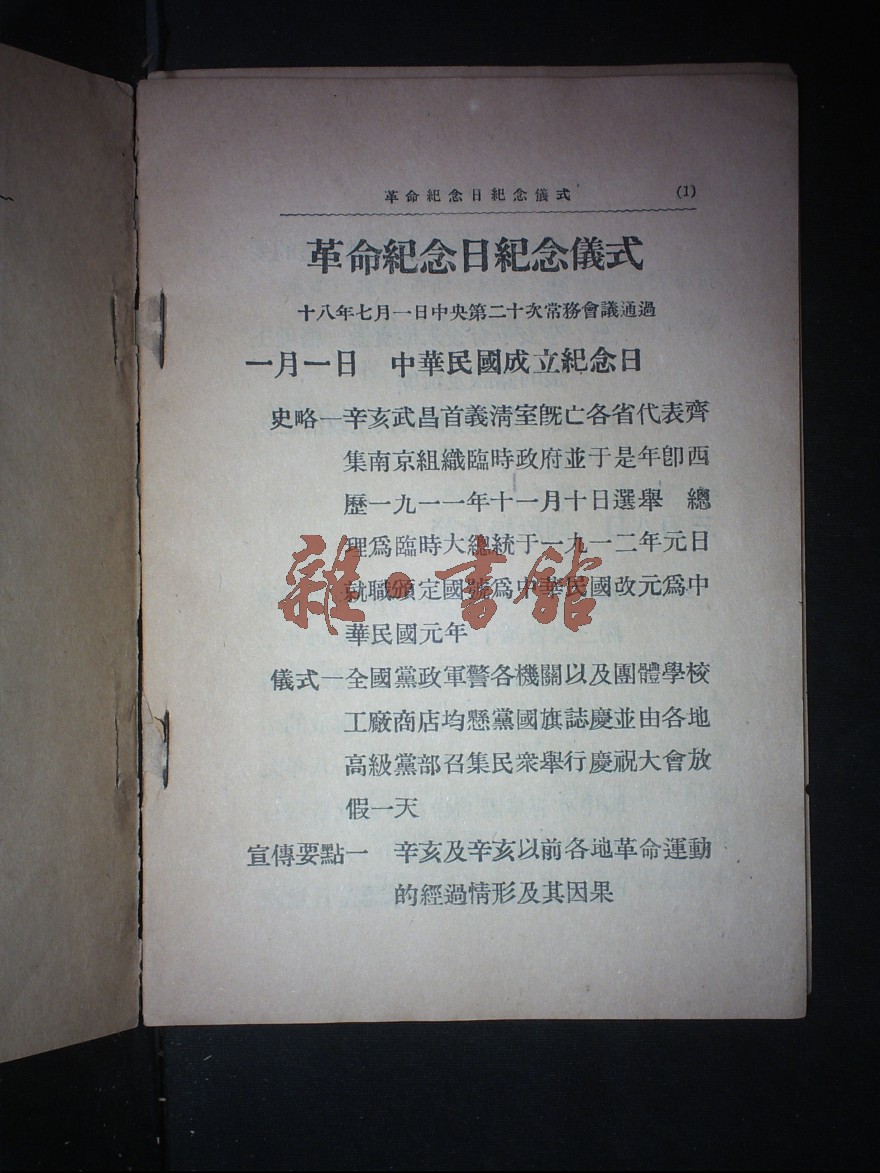 革命紀念日紀念儀式 (1)
革命紀念日紀念儀式
十八年七月一日中央第二十次常務會議通過
一月一日 中華民國成立紀念日
史略—辛亥武昌首義淸室旣亡各省代表齊
集南京組織臨時政府並于是年卽西
歷一九一一年十一月十日選舉 總
理爲臨時大總統于一九一二年元日
就職頒定國號爲中華民國改元爲中
華民國元年
儀式—全國黨政軍警各機關以及團體學校
工廠商店均懸黨國旗誌慶並由各地
高級黨部召集民衆舉行慶祝大會放
假一天
宣傳要點一 辛亥及辛亥以前各地革命運動
的經過情形及其因果
雜·書館